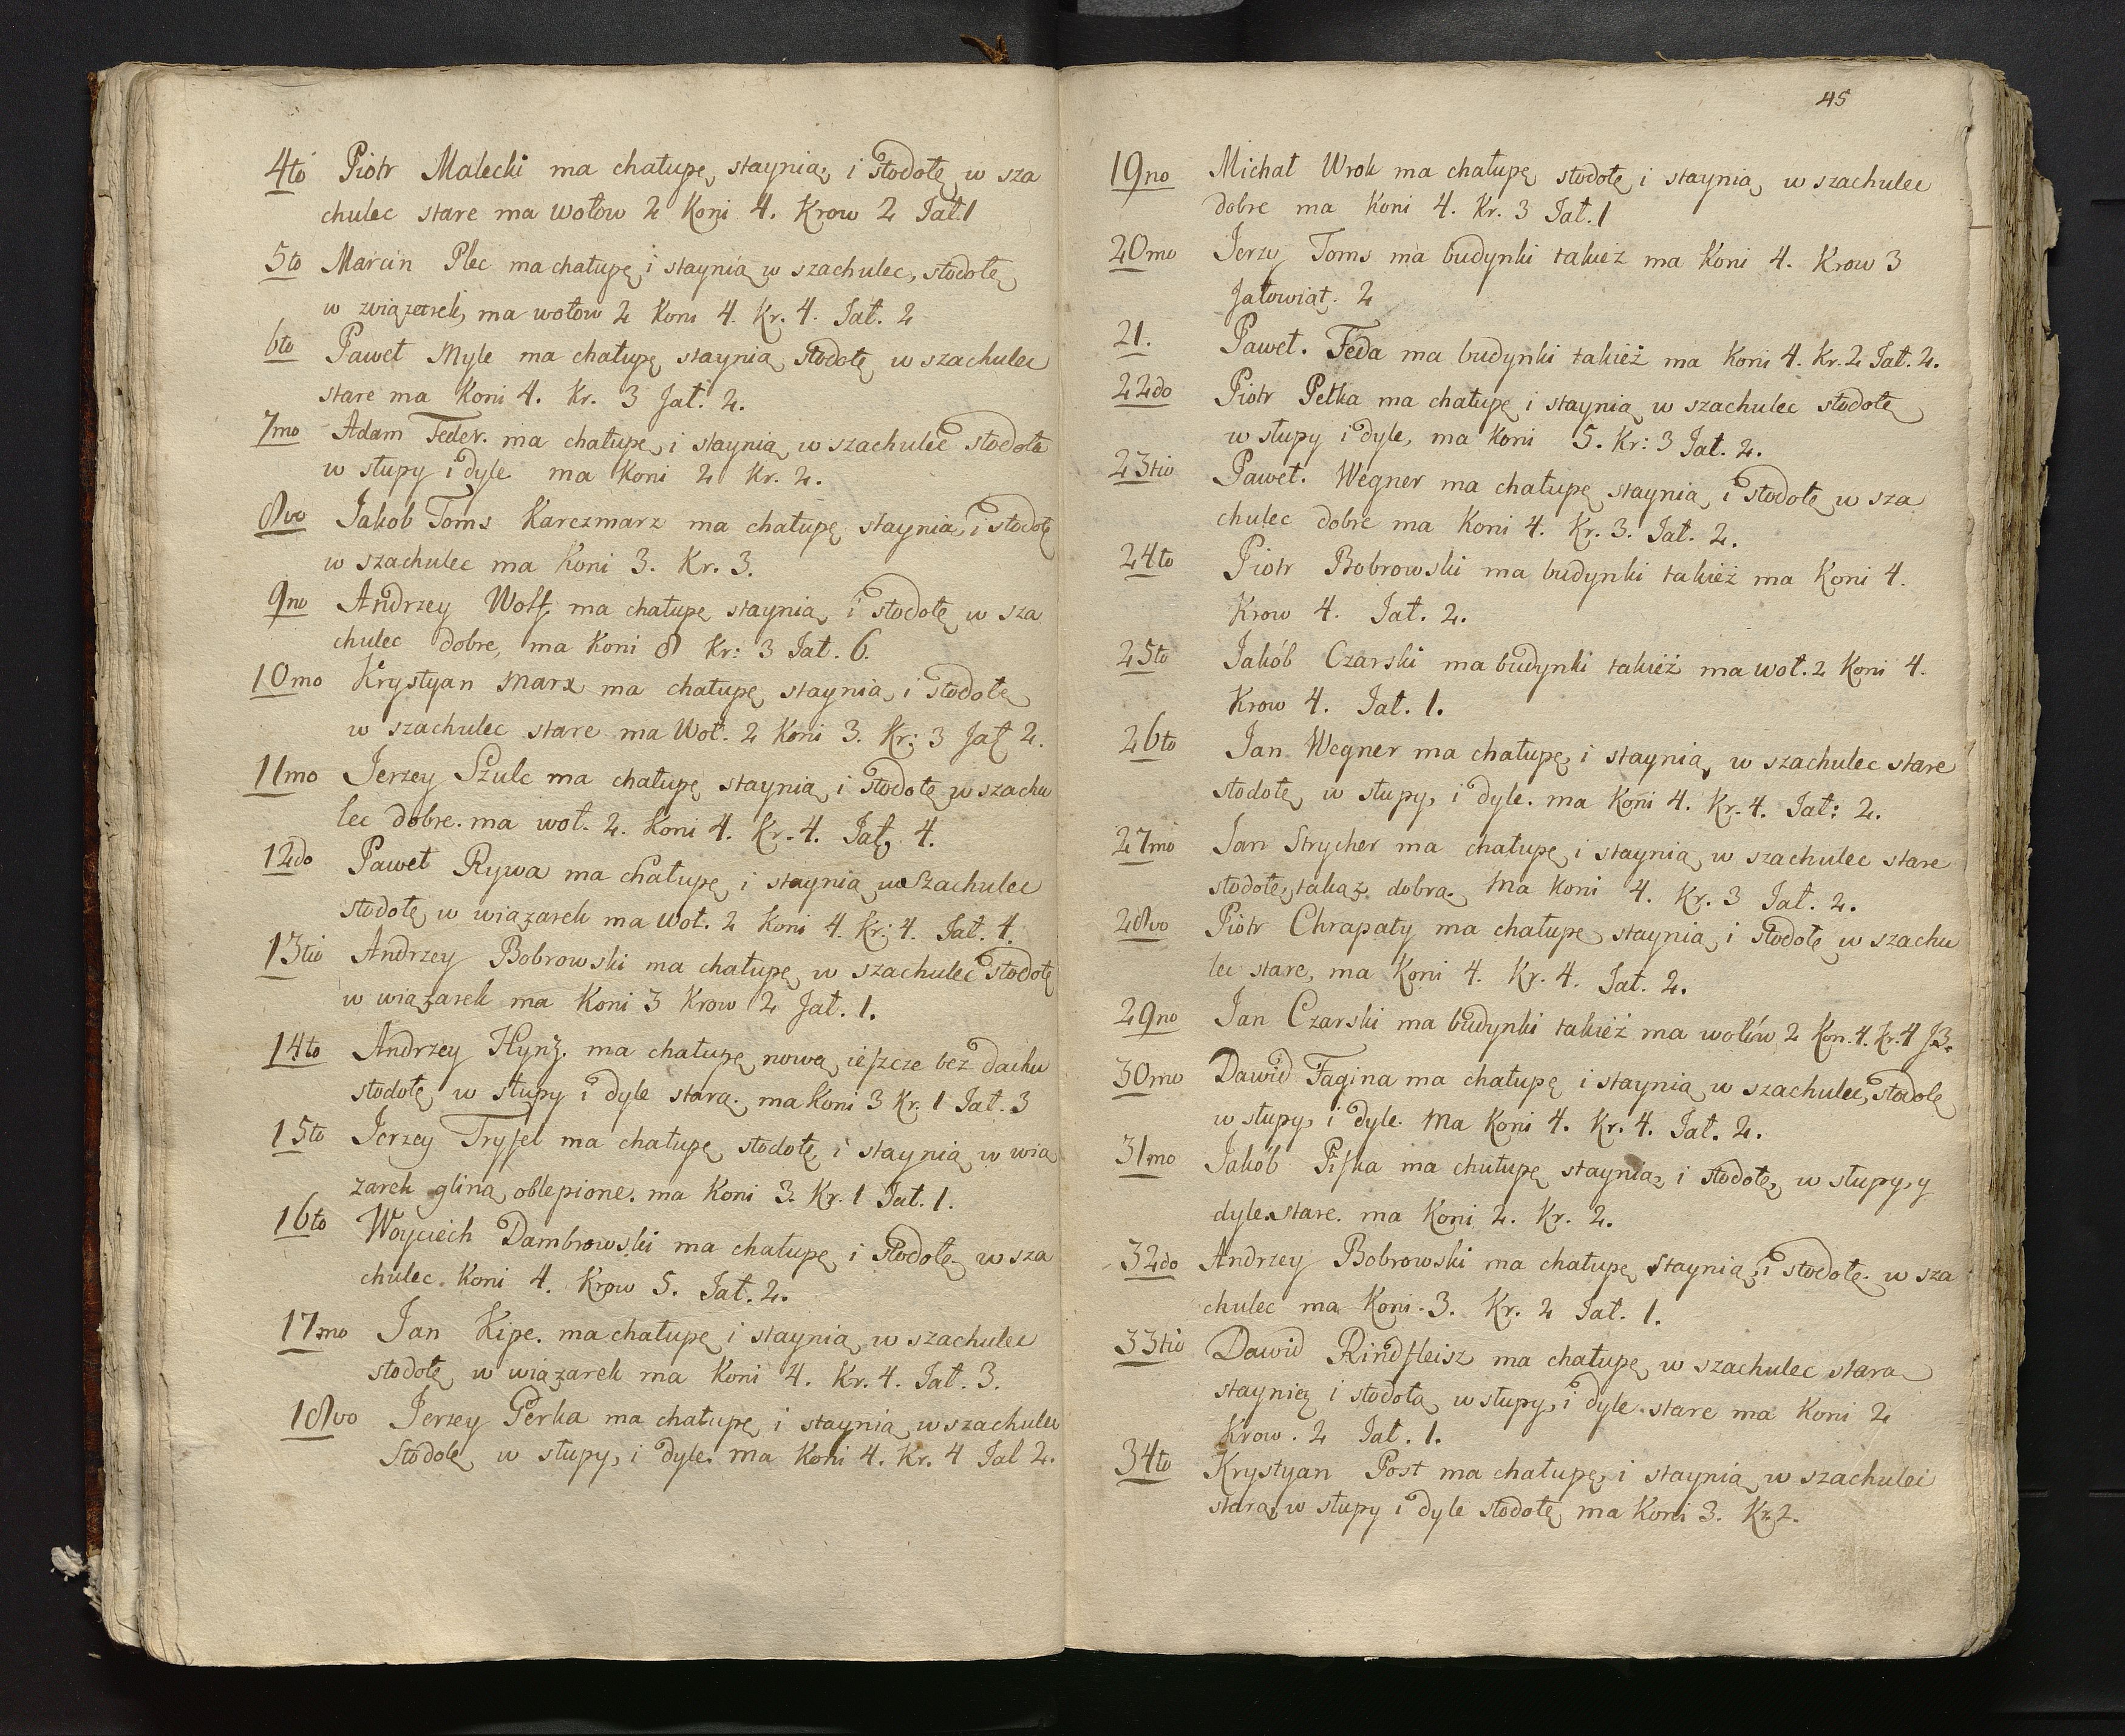 4to Piotr Malecki ma chałupę, staynią, i stodołę w sza
chulec stare ma wołow 2 Koni 4. Krow 2 Jał. 1
5to Marcin Plec ma chałupę i staynią w szachulec, stodołę
w związarek, ma wołow 2 Koni 4. Kr. 4. Jał. 2
6to Paweł Myle ma chałupę staynią, stodołę w szachulec
stare ma Koni 4. Kr. 3 Jał. 2.
7mo Adam Feder. ma chałupę, i staynią w szachulec stodołę
w słupy i dyle ma Koni 2 Kr. 2.
8vo Jakob Toms Karczmarz ma chałupę staynią, i stodołę
w szachulec ma Koni 3. Kr. 3.
9no Andrzey Wolf, ma chałupę staynią, i stodołę w sza
chulec dobre, ma Koni 8 Kr: 3 Jał. 6.
10mo Krystyan Marx ma chałupę staynią, i stodołę
w szachulec stare ma Woł. 2 Koni 3. Kr: 3 Jał 2.
11mo Jerzey Szulc ma chałupę staynią, i stodołę w szachu
lec dobre. ma woł. 2. Koni 4. Kr. 4. Jał. 4.
12do Paweł Rywa ma chałupę i staynią w szachulec
stodołę w wiązarek ma Woł. 2 Koni 4. Kr: 4. Jał. 4.
13tio Andrzey Bobrowski ma chałupę w szachulec stodołę
w wiązarek ma Koni 3 Krow 2 Jał. 1.
14to Andrzey Hynz. ma chałupę nową ieszcze bez dachu
stodołę w słupy i dyle stara. ma Koni 3 Kr. 1 Jał. 3
15to Jerzey Tryfel ma chałupę stodołę, i staynią w wią
zarek gliną oblepione. ma Koni 3. Kr. 1 Jał. 1.
16to Woyciech Dambrowski ma chałupę i stodołę w sza
chulec. Koni 4. Krow 5. Jał. 2.
17mo Jan Kipe. ma chałupę i staynią w szachulec
stodołę w wiązarek ma Koni 4. Kr. 4. Jał. 3.
18vo Jerzey Perka ma chałupę i staynią w szachulec
Stodołę w słupy, i dyle. ma Koni 4. Kr. 4 Jał 2.
45
19no Michał Wrok ma chałupę stodołę i staynią w szachulec
dobre ma Koni 4. Kr. 3 Jał. 1
20mo Jerzy Toms ma budynki takież ma Koni 4. Krow 3
Jałowiąt. 2
21. Paweł. Feda ma budynki takież ma Koni 4. Kr. 2 Jał. 2.
22do Piotr Petka ma chałupę i staynią w szachulec stodołę
w słupy i dyle, ma Koni 5. Kr: 3 Jał. 2.
23tio Paweł. Wegner ma chałupę staynią, i stodołę w sza
chulec dobre ma Koni 4. Kr. 3. Jał. 2.
24to Piotr Bobrowski ma budynki takież ma Koni 4.
Krow 4. Jał. 2.
25to Jakób Czarski ma budynki takież ma woł. 2 Koni 4.
Krow 4. Jał. 1.
26to Jan Wegner ma chałupę, i staynią w szachulec stare
stodołę w słupy, i dyle. ma Koni 4. Kr. 4. Jał: 2.
27mo Jan Strycher ma chałupę i staynią w szachulec stare
stodołę, takąż dobrą. ma Koni 4. Kr. 3 Jał. 2.
28vo Piotr Chrapaty ma chałupę staynią i stodołę w szachu
lec stare, ma Koni 4. Kr. 4. Jał. 2.
29no Jan Czarski ma budynki takież ma wołów 2 Kon. 4. Kr. 4 J. 3.
30mo Dawid Fagina ma chałupę i staynią w szachulec, stodołę
w słupy, i dyle. ma Koni 4. Kr. 4. Jał. 2.
31mo Jakób Piska ma chułupę staynią, i stodołę, w słupy, y
dyle stare. ma Koni 2. Kr. 2.
32do Andrzey Bobrowski ma chałupę staynią, i stodołę. w sza
chulec ma Koni. 3. Kr. 2 Jał. 1.
33tio Dawid Rindfleisz ma chałupę w szachulec stara
staynią i stodołą w słupy, i dyle stare ma Koni 2
Krow. 2 Jał. 1.
34to Krystyan Post ma chałupę, i staynią w szachulec
stara, w słupy i dyle stodołę ma Koni 3. Kr. 2.